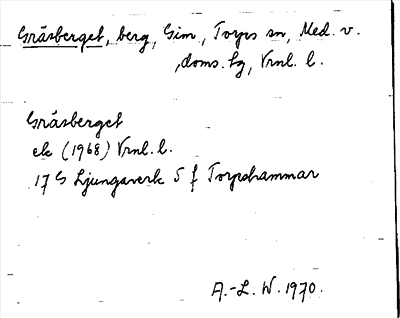 Gråsberget, berg, Gim, Torps sn, Med. v.
,doms.hg, Vrnl. l.
Gråsberget
ek (1968) Vrnl. l.
17 G Ljungaverk S f Torpshammar
A.-L. W. 1970.